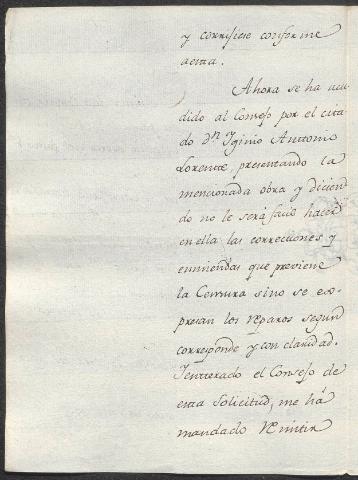 y corrigiese conforme
á esta.
Ahora se ha acu-
dido al Consejo por el cita-
do Dn. Iginio Antonio
Lorente, presentando la
mencionada obra y dicien-
do no le será facil hacer
en ella las correcciones y
enmiendas que previene
la Censura sino se ex-
presan los reparos segun
corresponde y con claridad.
Y enterado el Consejo de
esta Solicitud, me há
mandado remitir